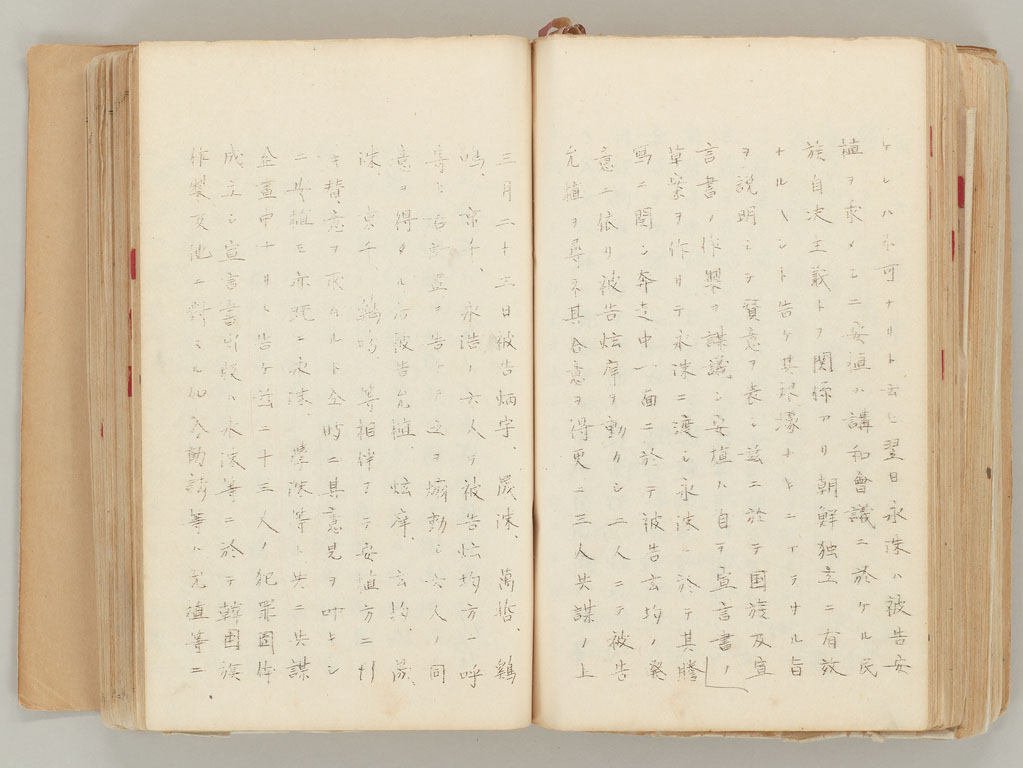 ケレハ不可ナリト云ヒ翌日永洙ハ被告安
植ヲ求メシニ安植ハ講和會議ニ於ケル民
族自决主義トヲ関係アリ朝鮮独立ニ有效
ナルヘシト告ケ其根據ナキニアラサル旨
ヲ説明シテ賛意ヲ表シ茲ニ於テ国旗及宣
言書ノ作製ヲ謀議シ安植ハ自テ宣言書ノ
草案ヲ作リテ永洙ニ渡シ永洙ニ於テ其謄
寫ニ関シ奔走中一面ニ於テ被告玄均ノ發
意ニ依リ被告炫庠ヲ動カシ二人ニテ被告
允植ヲ尋ネ其合意ヲ得更ニ三人共謀ノ上
三月二十三日被告炳宇、晟洙、萬哲、鶏
鳴、京千、永浩ノ六人ヲ被告炫均方ヘ呼
寄セ右計畫ヲ告ケテ之ヲ煽動シ六人ノ同
意ヲ得タル右被告允植、炫庠、玄均、晟
洙、京千、鶏鳴、等相伴フテ安植方ニ行
キ賛意ヲ求ムルト全時ニ其意見ヲ叩キシ
ニ安植モ亦既ニ永洙、學洙等ト共ニ共謀
企畫中ナリト告ケ茲ニ十三人ノ犯罪團体
成立シ宣言書ハ永洙等ニ於テ韓国旗
作製及他ニ對スル加入勧誘等ハ允植等ニ